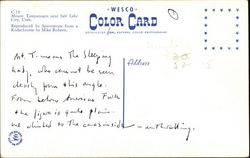 C14
Mount Timpanogos near Salt Lake
City, Utah.
Reproduced by Spectratone from a
Kodachrome by Mike Roberts.
WESCO
COLOR CARD
Address
Mt. T. means The Sleeping
lady, who cannot be seen
clearly from this angle.
From below American Fork
the figure is quite plain -
we climbed to the - enthralling.